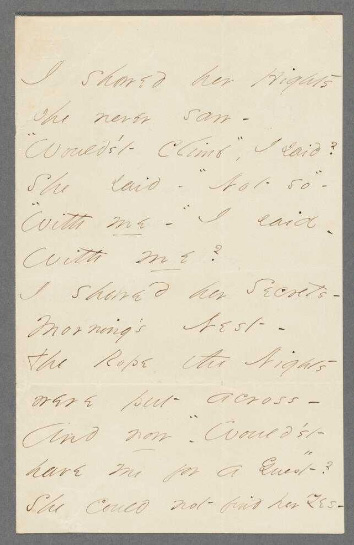 I showed her Hights
she never saw -
"Would'st Climb", I said?
She said - "Not so" -
"With me - " I said -
With me?
I showed her Secrets -
Morning's Nest -
The Rope the Nights
were put across -
And now - "Would'st
have me for a Guest"?
She could not find her Yes -